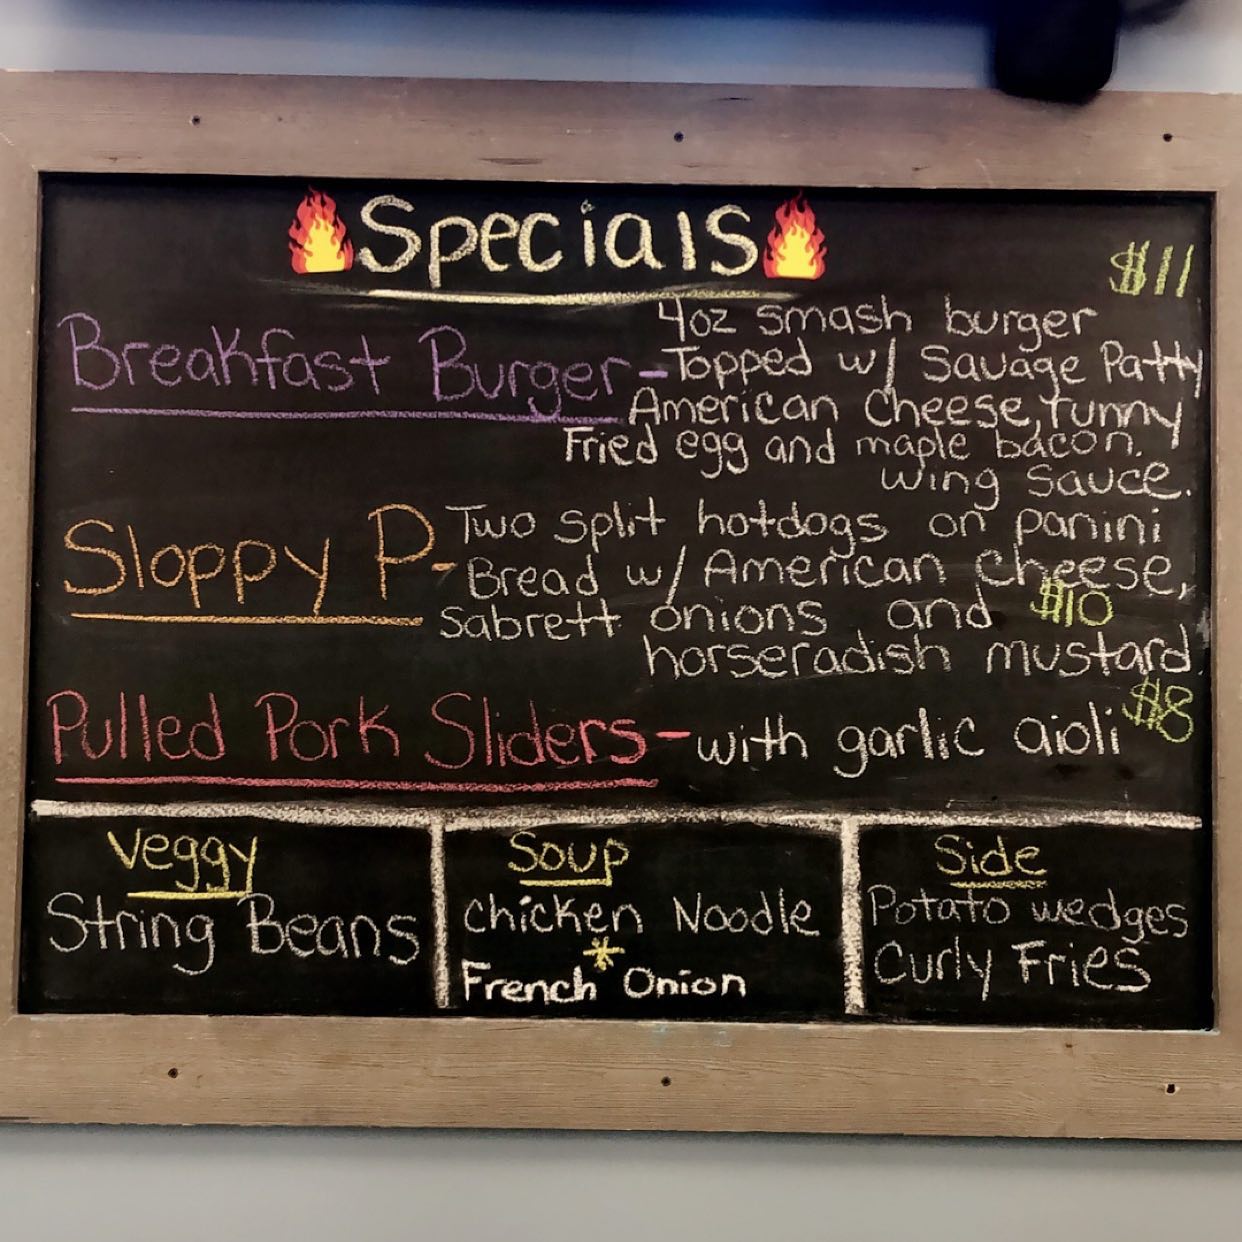 Specials
$11
Breakfast Burger - 4oz smash burger
Topped w/ Sauage Patty
American Cheese, runny
Fried egg and maple bacon.
wing sauce.
Sloppy P - Two split hotdogs on panini
Bread w/ American Cheese,
Sabrett onions and $10
horseradish mustard.
Pulled Pork Sliders - with garlic aioli $8
Veggy
String Beans
Soup
Chicken Noodle
*
French Onion
Side
Potato wedges
Curly Fries